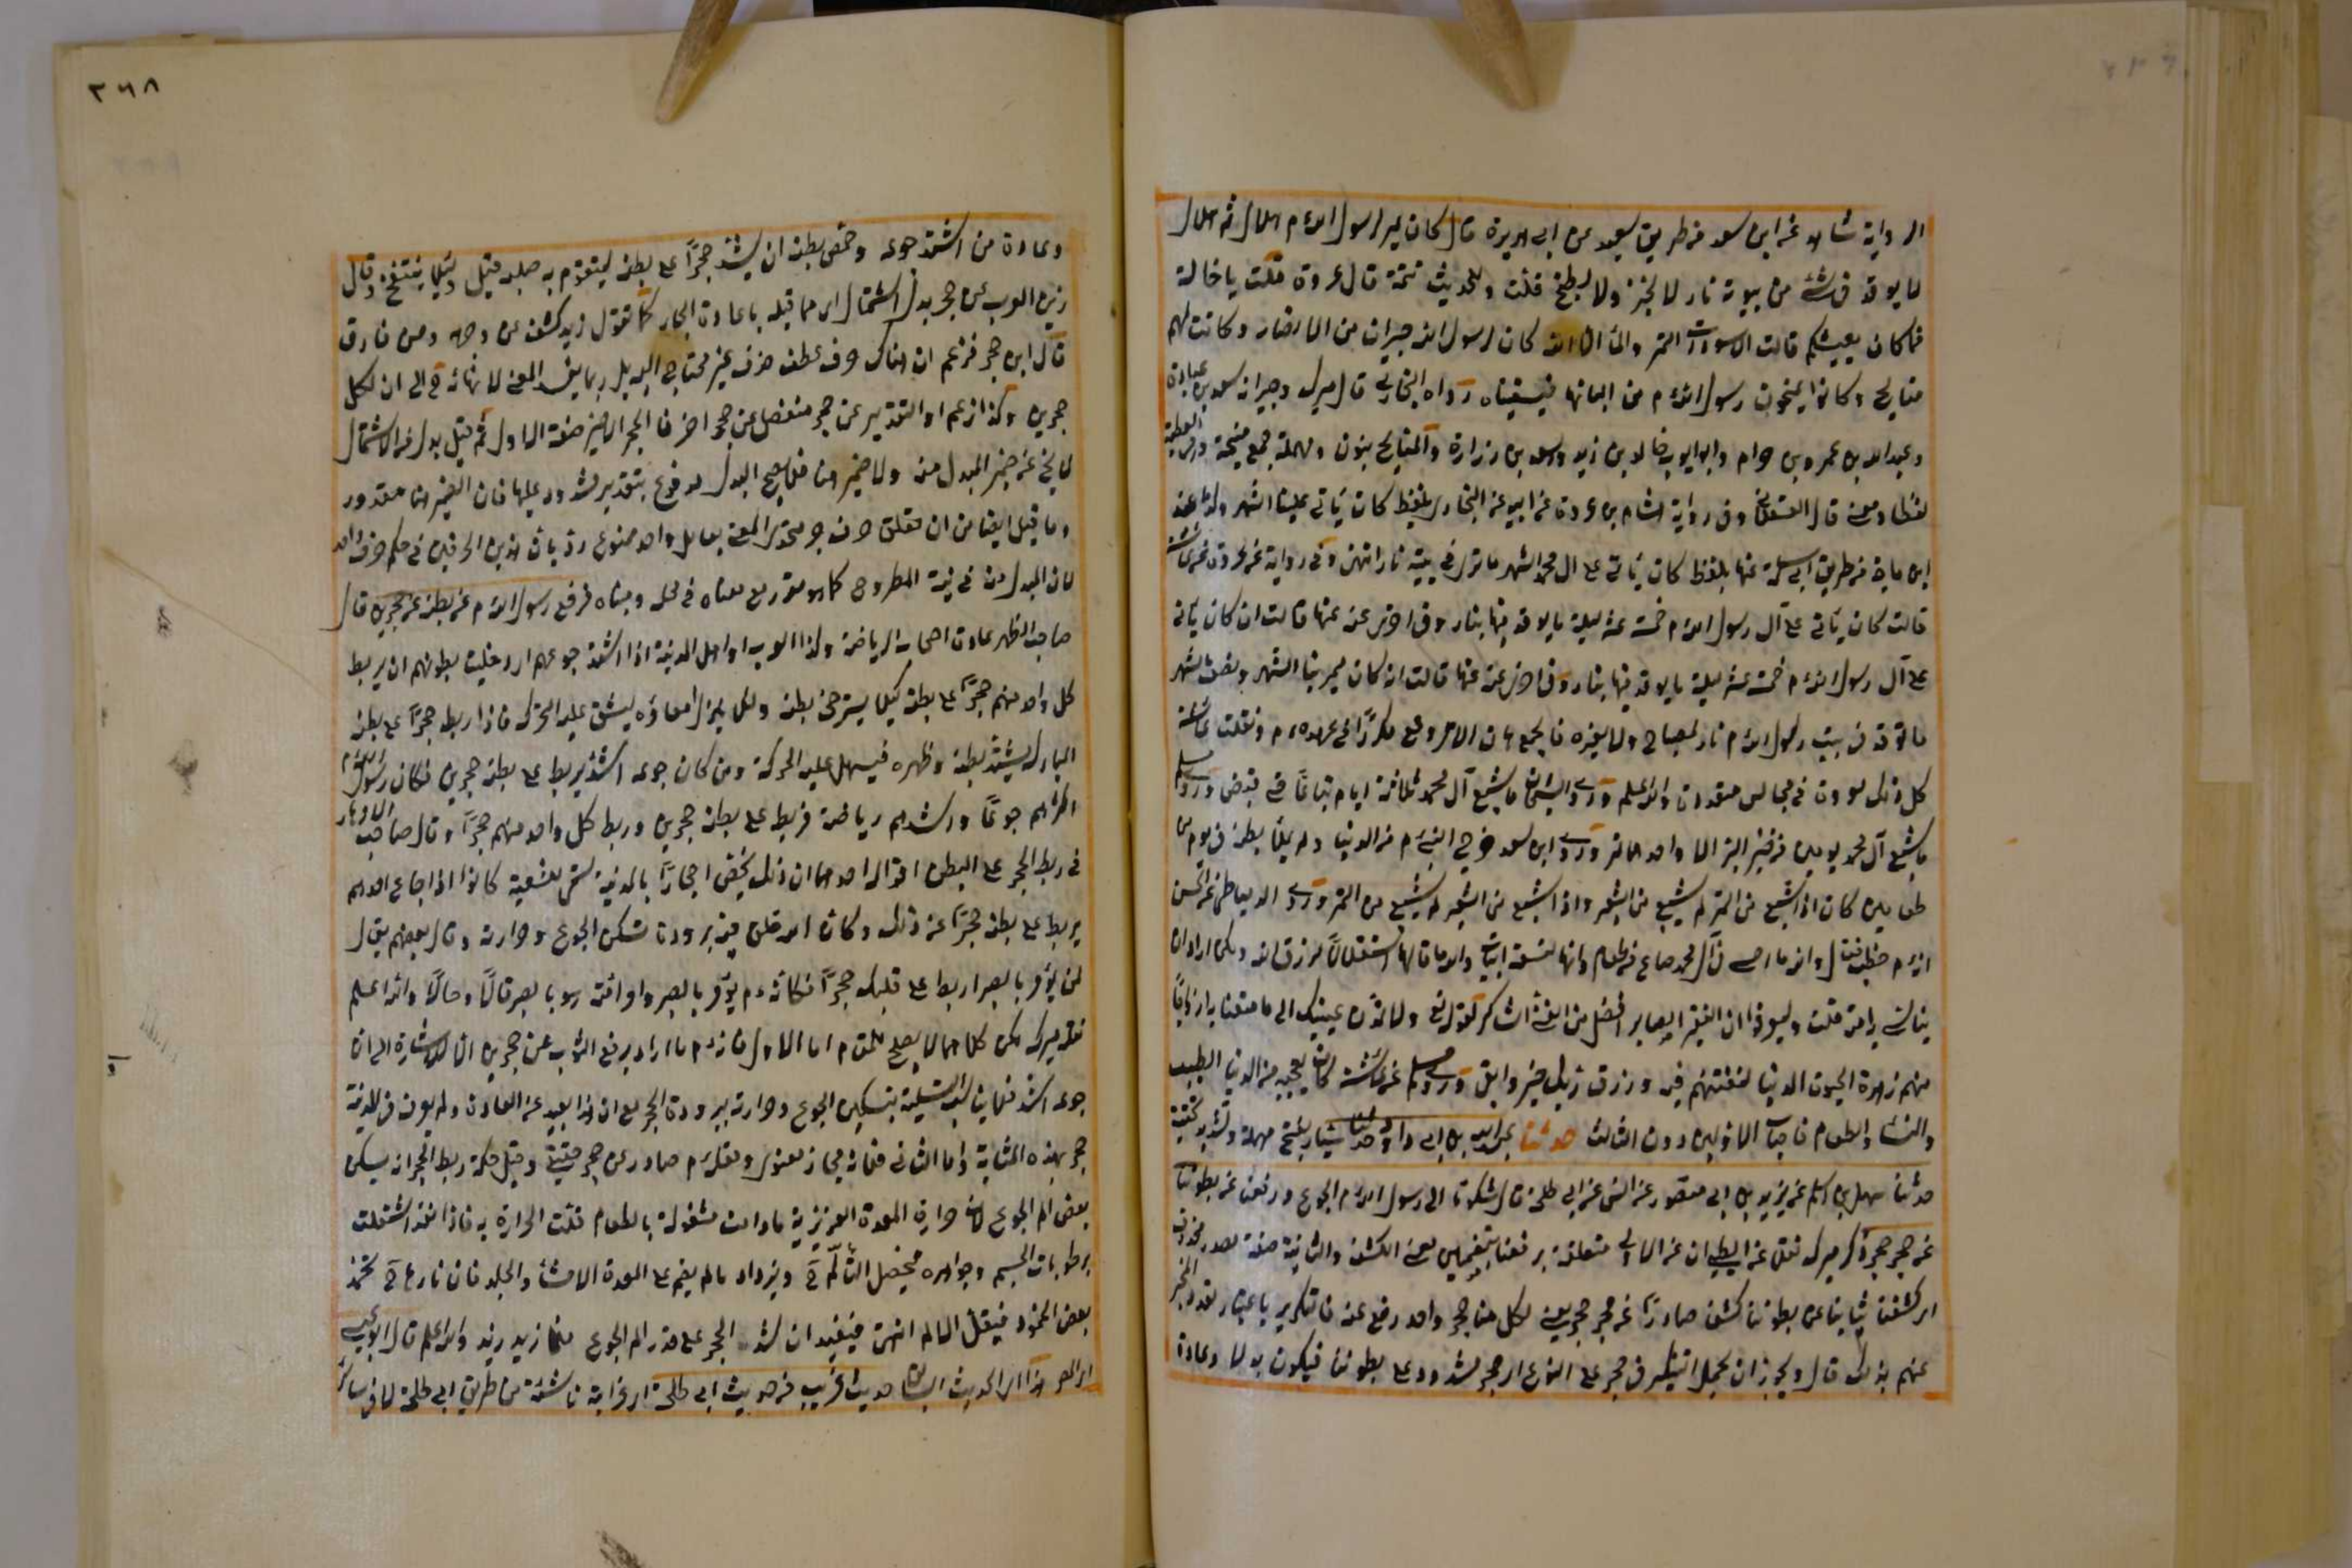 الرواية شاهد عند ابن سعد من طريق سعيد عن ابي هريرة قال كان يمر لرسول الله م هلال ثم هلال
لا يوقد في شئ من بيوته نار لا لخبز ولا لطبخ قلت وللحديث تتمة قال عروة قلت يا خالة
فما كان يعيشكم قالت الاسودان التمر والماء الا انه كان لرسول الله جيران من الانصار وكانت لهم
منايح وكانوا يمنحون رسول الله م من البانها فيسقيناه رواه البخاري قال ميرك وجيرانه سعد بن عبادة
وعبد الله بن عمرو بن حرام وابو ايوب خالد بن زيد وسعد بن زرارة والمنايح بنون ومهملة جمع منيحة وهي العطية
لفظا ومعنى قال العسقلاني وفي رواية هشام بن عروة عن ابيه عند البخاري بلفظ كان يأتي علينا الشهر ولنا عند
ابن ماجه من طريق ابي سلمة عنها بلفظ كان يأتي على ال محمد الشهر ما نرى في بيته نار انتهى وفي رواية عن عروة عن عائشة
قالت كان يأتي على آل رسول الله م خمسة عشر ليلة ما يوقد فيها بنار وفي اخرى عنه عنها قالت ان كان يأتي
على آل رسول الله م خمسة عشر ليلة ما يوقد فيها بنار وفي اخرى عنه عنها قالت ان كان ليمر بنا الشهر ونصف الشهر
ما توقد في بيت رسول الله م نار لمصباح ولا لغيره فالجمع ان الامر وقع مكررا في عهده م ونقلت عائشة
كل ذلك لعروة في مجالس متعددة والله اعلم وروى الشيخان ما شبع آل محمد ثلاثة ايام تباعا حتى قبض وروى مسلم
ما شبع آل محمد يومين من خبز البر الا واحدهما تمر وروى ابن سعد خرج النبي م من الدنيا ولم يملأ بطنه في يوم من
طعامين كان اذا شبع من التمر لم يشبع من الشعير واذا شبع من الشعير لم يشبع من التمر وروى الدمياطي عن الحسن
انه م خطب فقال والله ما امسى في آل محمد صاع من طعام وانها لتسعة ابيات والله ما قالها استقلالا لرزق الله ولكن اراد ان
يتأسى به امته قلت وليعرفوا ان الفقير الصابر افضل من الغني الشاكر لقوله تع ولا تمدن عينيك الى ما متعنا به ازواجا
منهم زهرة الحيوة الدنيا لنفتنهم فيه ورزق ربك خير وابقى وروى مسلم عن عائشة كان يعجبه من الدنيا الطيب
والنساء والطعام فاصاب الاولين دون الثالث حدثنا عبد الله بن ابي داود حدثنا سيار بفتح مهملة وتشديد تحتية
حدثنا سهل بن اسلم عن يزيد بن ابي منصور عن انس عن ابي طلحة قال شكونا الى رسول الله م الجوع ورفعنا عن بطوننا
عن حجر حجر ذكر ميرك نقلا عن الطيبي ان عن الاولى متعلقة برفعنا بتضمين معنى الكشف والثانية صفة مصدر محذوف
اي كشفنا ثيابنا عن بطوننا كشفا صادرا عن حجر حجر يعني لكل منا حجر واحد رفع عنه فالتكرير باعتبار تعدد المخبر
عنهم بذلك قال ويجوز ان يحمل التنكير في حجر على النوع اي حجر مشدود على بطوننا فيكون بدلا وعادة
٣٦٨
وعادة من اشتد جوعه وخمص بطنه ان يشد حجرا على بطنه ليتقوم به صلبه قيل ولئلا ينتفخ وقال
زين العرب عن حجر بدل اشتمال اي مما قبله باعادة الجار كما تقول زيد كشف عن وجهه وعن خارق
قال ابن حجر فزعم ان هناك حرف عطف حذف غير محتاج اليه بل ربما يفسد المعنى لانهائه ح الى ان لكل
حجرين وكذا زعم ان التقدير عن حجر منفصل عن حجر اخر فالحجر الاخير صفة الاول ثم قيل بدل الاشتمال
لا يخ عن ضمير المبدل منه ولا ضمير هنا فلا يصح البدل مدفوع بتقدير مشدود عليها فان الضمير هنا مقدور
وما قيل ايضا من ان تعلق حرف جر متحد المعنى بعامل واحد ممنوع رد بان هذين الحرفين في حكم حرف واحد
لان المبدل منه في نية المطروح كما هو مقرر مع معناه في محله ومبناه فرفع رسول الله م عن بطنه عن حجرين قال
صاحب المظهر عادة اصحاب الرياضة وكذا العرب او اهل المدينة اذا اشتد جوعهم او خليت بطونهم ان يربط
كل واحد منهم حجرا على بطنه كيلا يسترخى بطنه ولئلا ينزل امعاؤه ليشق عليه التحرك فاذا ربط حجرا على بطنه
المبارك يشتد بطنه وظهره فيسهل عليه الحركة ومن كان جوعه اشد يربط على بطنه حجرين فكان رسول الله م
اكثرهم جوعا واشدهم رياضة فربط على بطنه حجرين وربط كل واحد منهم حجرا وقال صاحب الازهار
في ربط الحجر على البطن اقوال احدها ان ذلك يخص احجارا بالمدينة تسمى المشبعة كانوا اذا جاع احدهم
يربط على بطنه حجرا عند ذلك وكان الله خلق فيه برودة تسكن الجوع وحرارته وقال بعضهم يقال
لمن يؤمر بالصبر اربط على قلبك حجرا فكانه م يؤمر بالصبر وامر امته بالصبر قالا وحالا والله اعلم
نقله ميرك لكن كلاهما لا يصلح للمقام اما الاول فانه م ما اراد برفع الثوب عن حجرين الا للاشارة الى ان
جوعه اشد فلا يناسب التسلية بتسكين الجوع وحرارته ببرودة الحجر مع ان هذا بعيد عن العادة ولم يعرف في المدينة
حجر بهذه المثابة واما الثاني فلانه مجاز معنوي وفعله م صادر عن حجر حقيقي وقيل حكمة ربط الحجر انه يسكن
بعض الم الجوع لان حرارة المعدة الغريزية ما دامت مشغولة بالطعام قلت الحرارة به فاذا نفد اشتغلت
برطوبات الجسم وجواهره فيحصل التألم ح ويزداد ما لم يضم على المعدة الاحشاء والجلد فان نارها ح تخمد
بعض الخمود فيقل الالم انتهى فيفيد ان شد الحجر على قدر الم الجوع فلما زيد زيد والله اعلم قال ابو عيسى
اي المص هذا اي الحديث السابق حديث غريب من حديث ابي طلحة اي غرابته ناشئة من طريق ابي طلحة لا من سائر